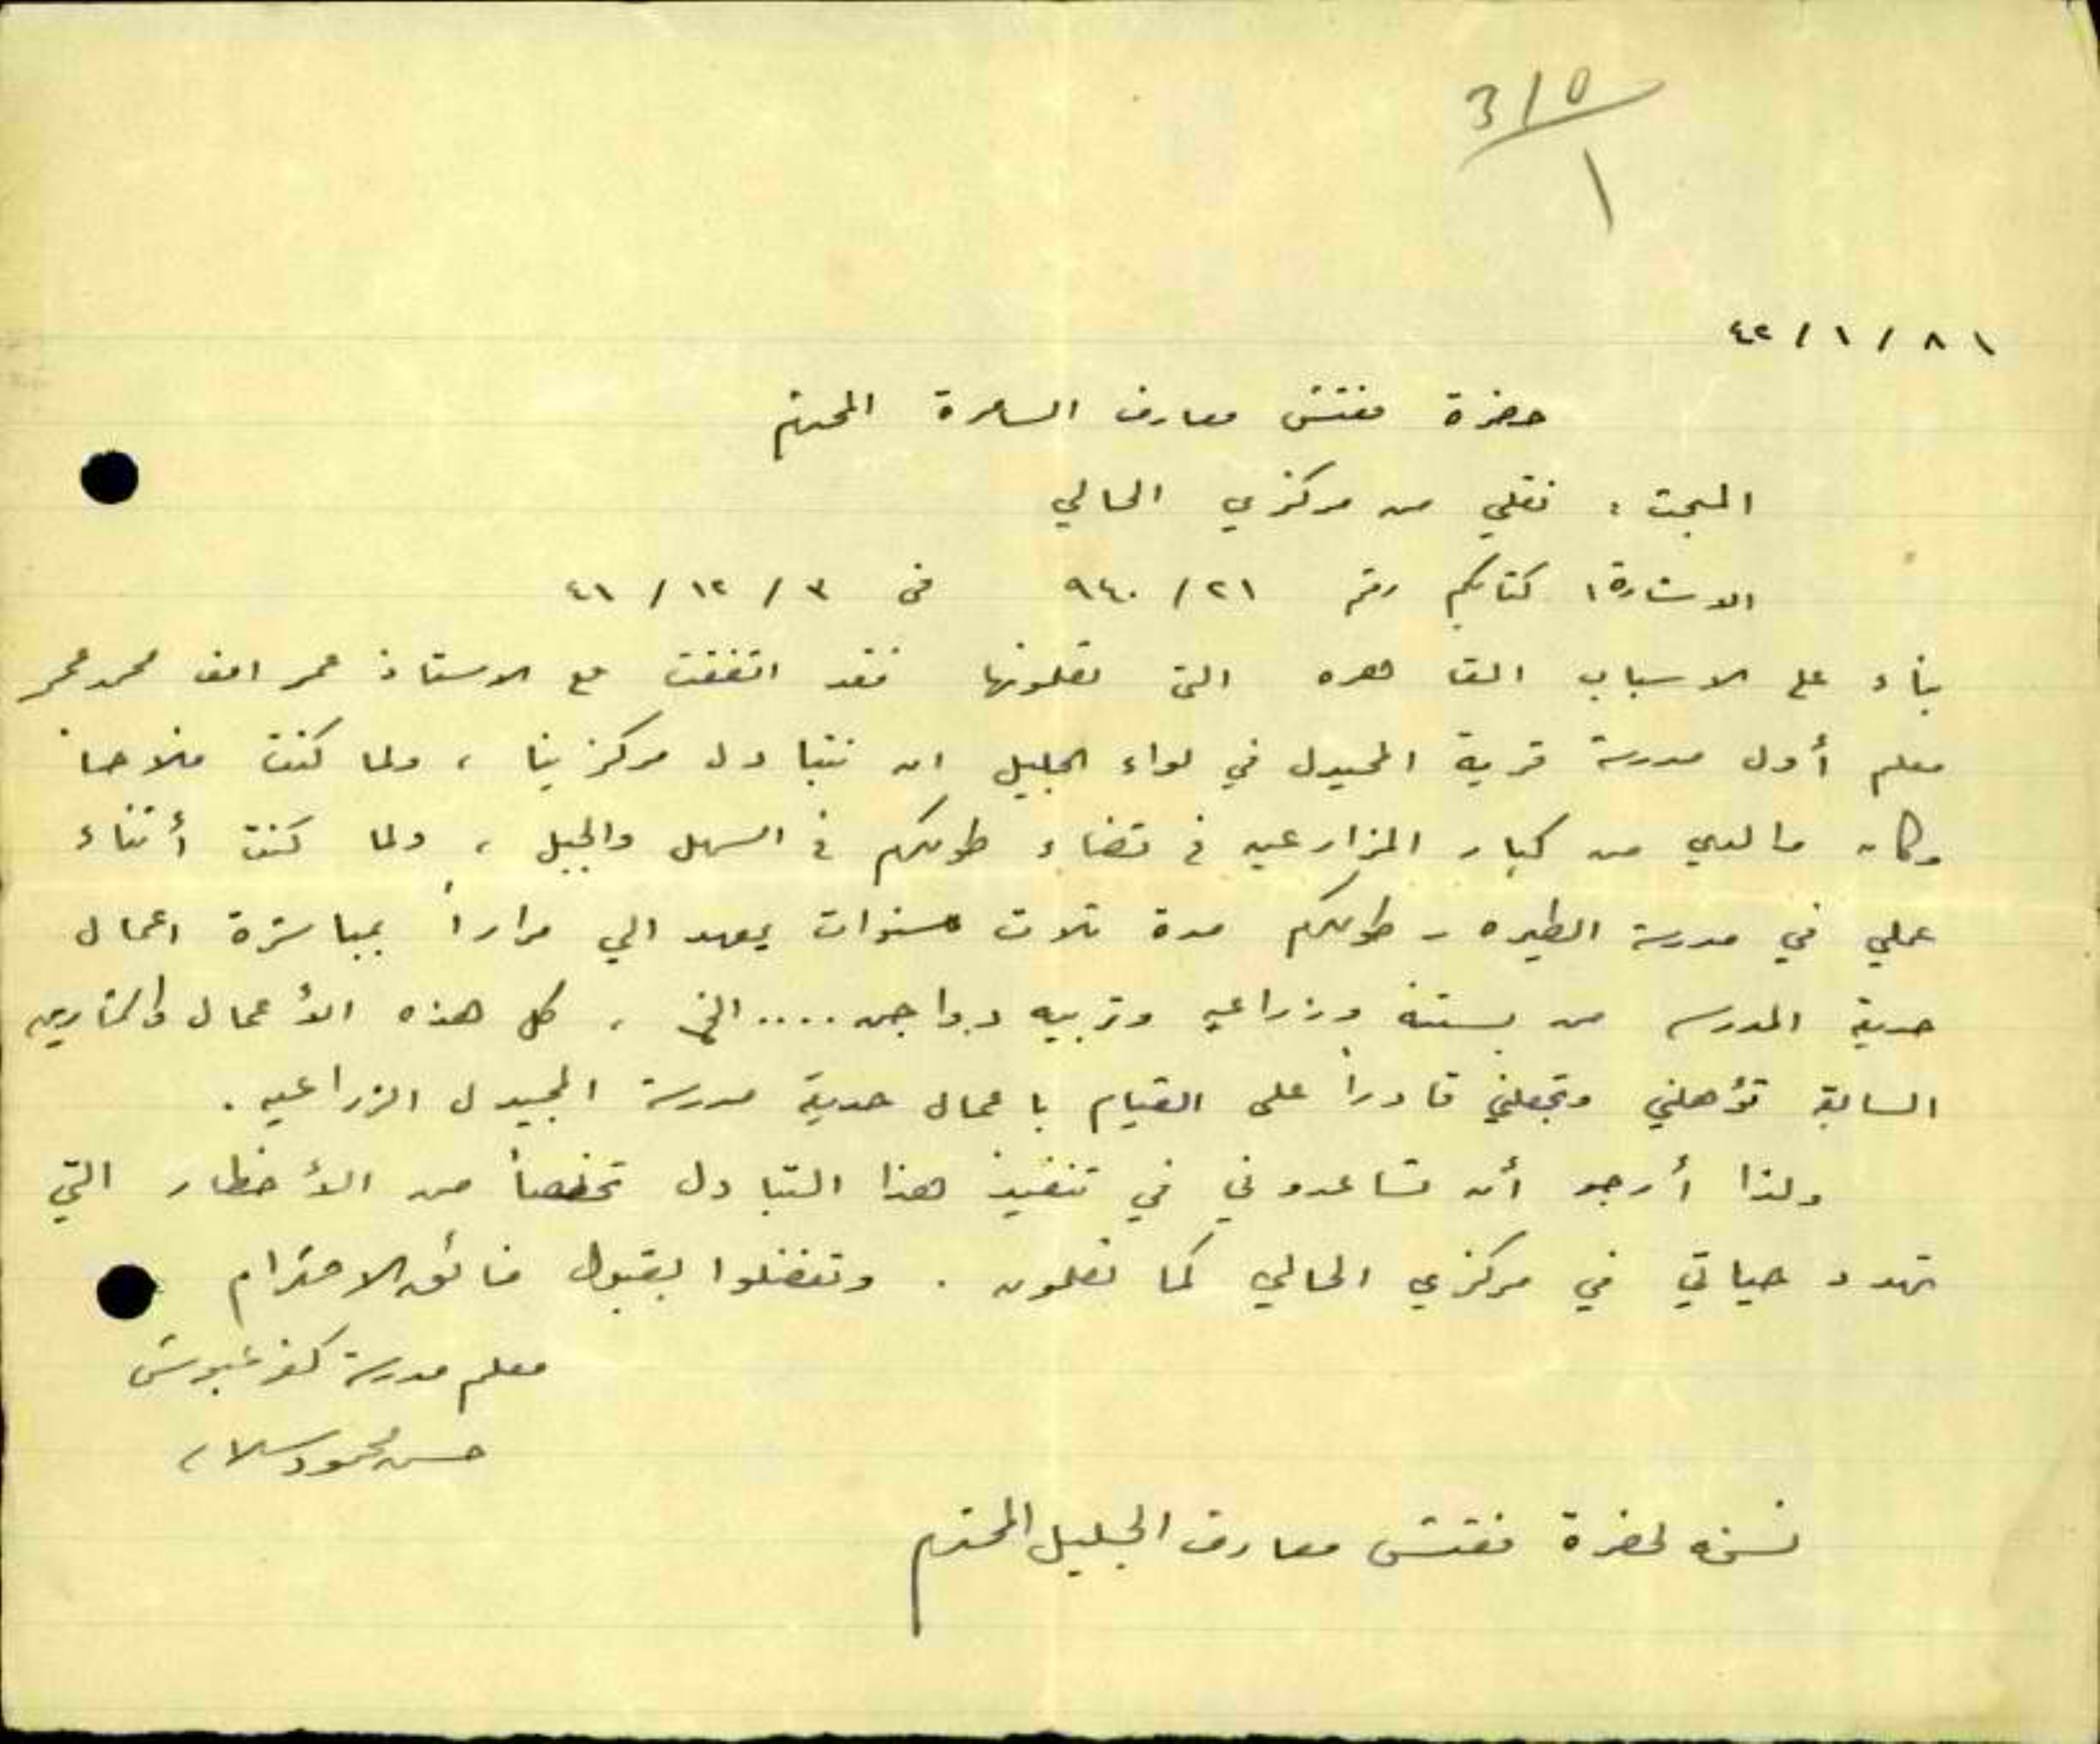 310
1
١٨ / ١ / ٤٢
حضرة مفتش معارف السامرة المحترم
المبحث : نقلي من مركزي الحالي
الاشارة : كتابكم رقم ٢١ / ٩٤٠ في ٣ / ١٢ / ٤١
بناء على الاسباب القاهره التي تعلمونها فقد اتفقت مع الاستاذ عمر افندي محمد عمر
معلم أول مدرسة قرية المجيدل في لواء الجليل ان نتبادل مركزينا ، ولما كنت فلاحاً
وكان والدي من كبار المزارعين في قضاء طولكرم في السهل والجبل ، ولما كنت أثناء
عملي في مدرسة الطيره - طولكرم مدة ثلاث سنوات يعهد الي مراراً بمباشرة اعمال
حديقة المدرسه من بستنة وزراعيه وتربيه دواجن .... الخ ، كل هذه الأعمال والتمارين
السابقة تؤهلني وتجعلني قادراً على القيام باعمال حديقة مدرسة المجيدل الزراعيه .
ولذا أرجو أن تساعدوني في تنفيذ هذا التبادل تخلصاً من الأخطار التي
تهدد حياتي في مركزي الحالي كما تعلمون . وتفضلوا بقبول فائق الاحترام
معلم مدرسة كفر عبوش
حسن محمود
نسخه لحضرة مفتش معارف الجليل المحترم